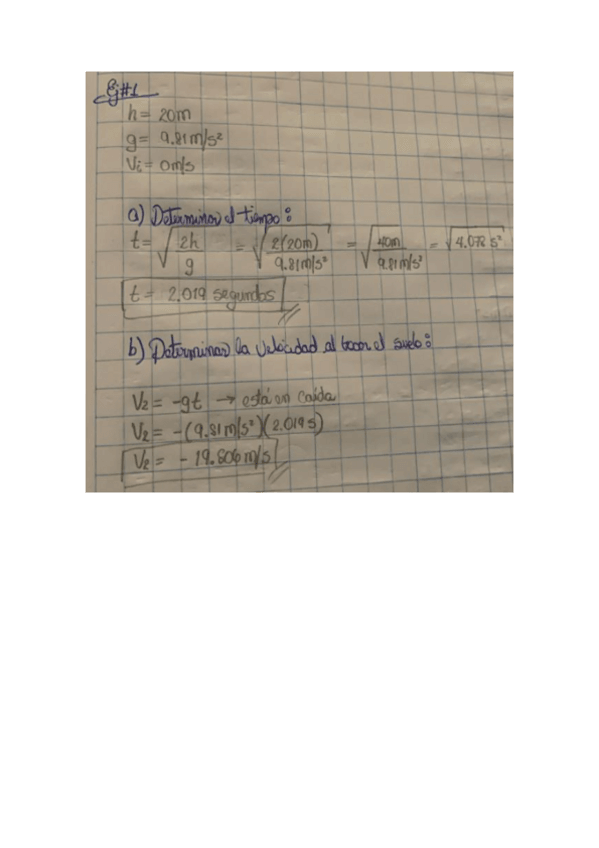 Ej#1
h= 20m
g= 9.81m/s²
Vi= 0m/s
a) Determinar el tiempo:
t= √2h/g = √2(20m)/9.81m/s² = √40m/9.81m/s² = √4.078 s²
t= 2.019 segundos
b) Determinar la velocidad al tocar el suelo:
V2= -gt → está en caída
V2= -(9.81m/s²)(2.019s)
V2= - 19.806m/s